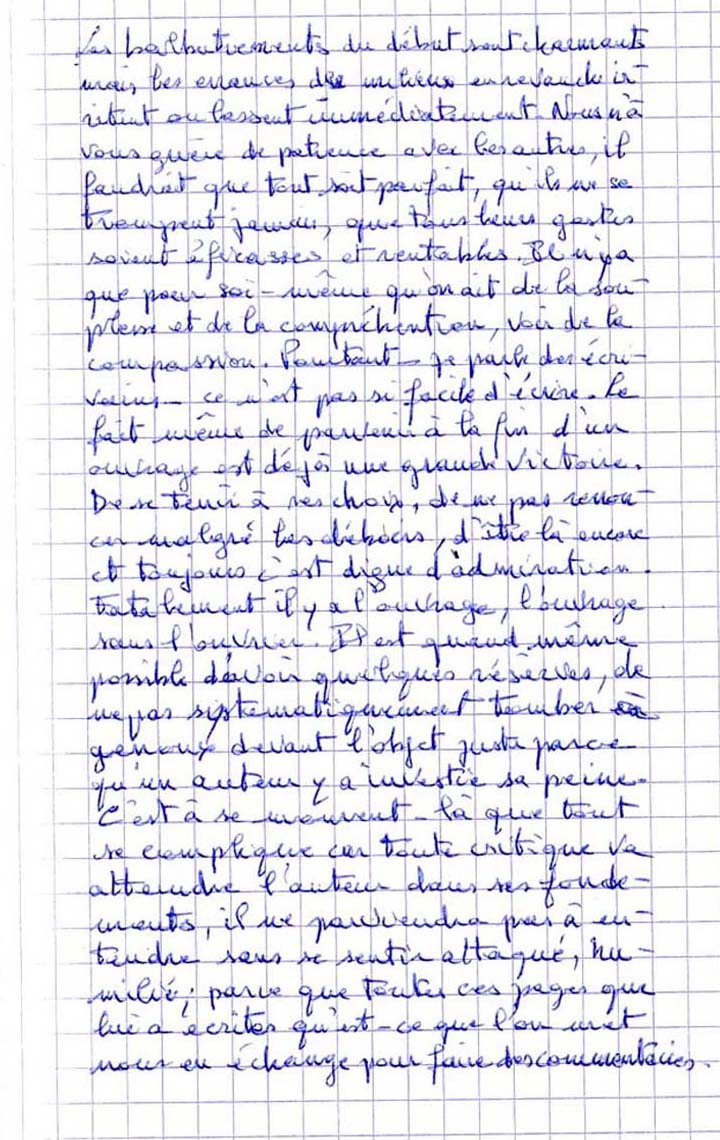 Les balbutiements du début sont charmants
mais les errances du milieu en revanche ir-
ritent ou lassent immédiatement. Nous n'a
vous guère de patience avec les autres, il
faudrait que tout soit parfait, qu'ils ne se
trompent jamais, que tous leurs gestes
soient éficasses et rentables. Il n'y a
que pour soi-même qu'on ait de la sou-
plesse et de la compréhention, voir de la
compassion. Pourtant - je parle des écri-
vains - ce n'est pas si facile d'écrire. Le
fait même de parvenir à la fin d'un
ouvrage est déjà une grande victoire.
De se tenir à ses choix, de ne pas renon-
cer malgré les déboirs, d'être là encore
et toujours c'est digne d'admiration.
Fatalement il y a l'ouvrage, l'ouvrage
sans l'ouvrier. Il est quand même
possible d'avoir quelques réserves, de
ne pas systématiquement tomber à
genoux devant l'objet juste parce
qu'un auteur y a investie sa peine.
C'est à se moment-là que tout
se complique car toute critique va
atteindre l'auteur dans ses fonde-
ments, il ne parviendra pas à en-
tendre sans se sentir attaqué, hu-
milié; parce que toutes ces pages que
lui a écrites qu'est-ce que l'on met
nous en échange pour faire des commentaires.